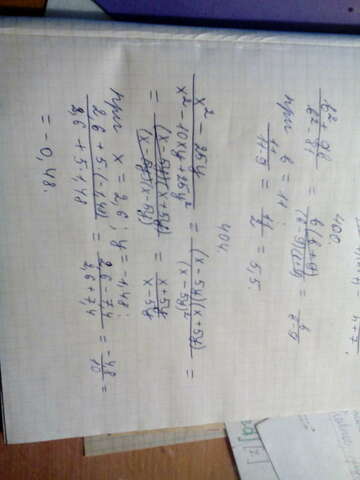 400.
b² + 9b / b² - 81 = b(b + 9) / (b - 9)(b + 9) = b / b - 9
при b = 11
11 / 11-9 = 11 / 2 = 5,5.
404.
x² - 25y² / x² - 10xy + 25y² = (x - 5y)(x + 5y) / (x - 5y)² =
= (x - 5y)(x + 5y) / (x - 5y)(x - 5y) = x + 5y / x - 5y
при x = 2,6; y = -1,48;
2,6 + 5·(-1,48) / 2,6 + 5·1,48 = 2,6 - 7,4 / 2,6 + 7,4 = -4,8 / 10 =
= - 0,48.